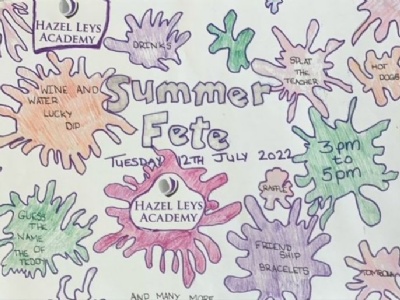 HAZEL LEYS
ACADEMY
DRINKS
SPLAT
THE
TEACHER
HOT
DOGS
WINE AND
WATER
LUCKY
DIP
Summer
Fete
TUESDAY 12TH JULY 2022
3pm
to
5pm
HAZEL LEYS
ACADEMY
RAFFLE
GUESS
THE
NAME
OF
THE
TEDDY
FRIEND
SHIP
BRACELETS
TOMBOLA
AND MANY MORE